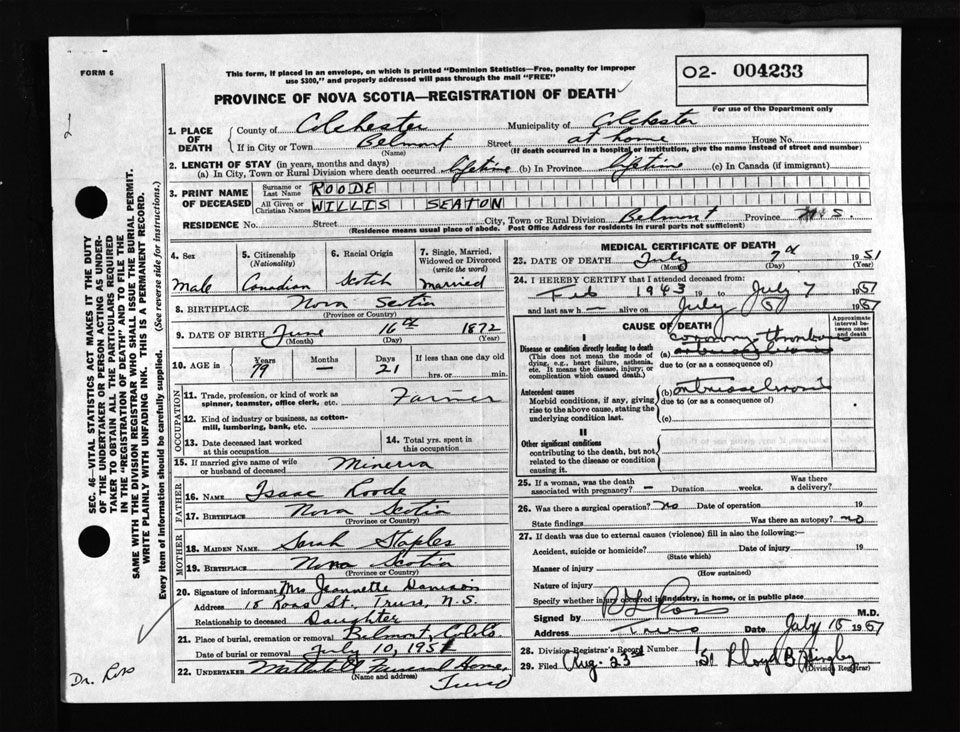 FORM 6
This form, if placed in an envelope, on which is printed "Dominion Statistics—Free, penalty for improper
use $300," and properly addressed will pass through the mail "FREE"
02- 004233
For use of the Department only
PROVINCE OF NOVA SCOTIA—REGISTRATION OF DEATH
SEC. 46—VITAL STATISTICS ACT MAKES IT THE DUTY
OF THE UNDERTAKER OR PERSON ACTING AS UNDER-
TAKER TO OBTAIN ALL THE PARTICULARS REQUIRED
IN THE "REGISTRATION OF DEATH" AND TO FILE THE
SAME WITH THE DIVISION REGISTRAR WHO SHALL ISSUE THE BURIAL PERMIT.
WRITE PLAINLY WITH UNFADING INK. THIS IS A PERMANENT RECORD.
Every item of information should be carefully supplied. (See reverse side for instructions.)
1. PLACE OF DEATH
County of Colchester Municipality of Colchester
If in City or Town Belmont Street at home House No.
(Name) (If death occurred in a hospital or institution, give the name instead of street and number)
2. LENGTH OF STAY (in years, months and days)
(a) In City, Town or Rural Division where death occurred lifetime (b) In Province lifetime (c) In Canada (if immigrant)
3. PRINT NAME OF DECEASED
Surname or Last Name ROODE
All Given or Christian Names WILLIS SEATON
RESIDENCE No. Street City, Town or Rural Division Belmont Province N.S.
(Residence means usual place of abode. Post Office Address for residents in rural parts not sufficient)
4. Sex Male
5. Citizenship (Nationality) Canadian
6. Racial Origin Scotch
7. Single, Married, Widowed or Divorced (write the word) Married
8. BIRTHPLACE Nova Scotia
(Province or Country)
9. DATE OF BIRTH June 16th 1872
(Month) (Day) (Year)
10. AGE in Years 79 Months — Days 21 If less than one day old hrs. or min.
OCCUPATION
11. Trade, profession, or kind of work as spinner, teamster, office clerk, etc. Farmer
12. Kind of industry or business, as cotton-mill, lumbering, bank, etc.
13. Date deceased last worked at this occupation
14. Total yrs. spent in this occupation
15. If married give name of wife or husband of deceased Minerva
FATHER
16. NAME Isaac Roode
17. BIRTHPLACE Nova Scotia
(Province or Country)
MOTHER
18. MAIDEN NAME Sarah Staples
19. BIRTHPLACE Nova Scotia
(Province or Country)
20. Signature of informant Mrs Jeannette Davison
Address 18 Ross St., Truro, N.S.
Relationship to deceased Daughter
21. Place of burial, cremation or removal Belmont, Col. Co.
Date of burial or removal July 10, 1951
22. UNDERTAKER Funeral Home,
(Name and address) Truro
Dr. Ross
MEDICAL CERTIFICATE OF DEATH
23. DATE OF DEATH July 7th 1951
(Month) (Day) (Year)
24. I HEREBY CERTIFY that I attended deceased from:
Feb 1943 19 to July 7 1951
and last saw h— alive on July 1951
CAUSE OF DEATH
Approximate interval between onset and death
I
Disease or condition directly leading to death
(This does not mean the mode of dying, e.g., heart failure, asthenia, etc. It means the disease, injury, or complication which caused death.)
(a) coronary thrombosis
due to (or as a consequence of)
Antecedent causes
Morbid conditions, if any, giving rise to the above cause, stating the underlying condition last.
(b) arteriosclerosis
due to (or as a consequence of)
(c)
II
Other significant conditions
contributing to the death, but not related to the disease or condition causing it.
25. If a woman, was the death associated with pregnancy? — Duration weeks. Was there a delivery?
26. Was there surgical operation? No Date of operation 19
State findings Was there an autopsy? no
27. If death was due to external causes (violence) fill in also the following:—
Accident, suicide or homicide? Date of injury 19
(State which)
Manner of injury
(How sustained)
Nature of injury
Specify whether injury occurred in industry, in home, or in public place
Signed by Ross M.D.
Address Truro Date July 10 1951
28. Division Registrar's Record Number
29. Filed Aug. 23rd 1951 Lloyd B.
(Division Registrar)